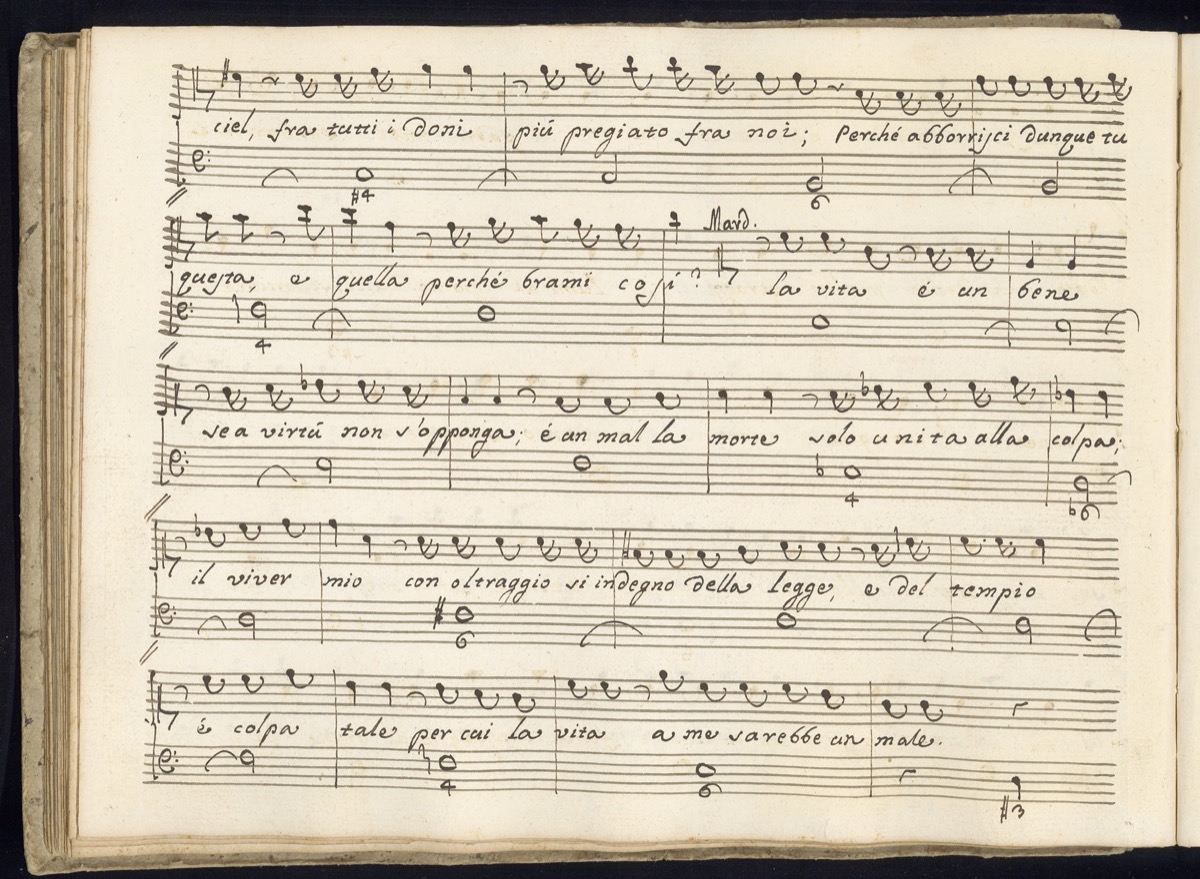 ciel, fra tutti i doni più pregiato fra noi; Perché abborrisci dunque tu
#4 6
Mard.
questa, e quella perché brami così? la vita é un bene
4
se a virtù non s'opponga; é un mal la morte solo unita alla colpa;
4 b6
il viver mio con oltraggio si indegno della legge, e del tempio
6
é colpa tale per cui la vita a me sarebbe un male.
4 6 #3